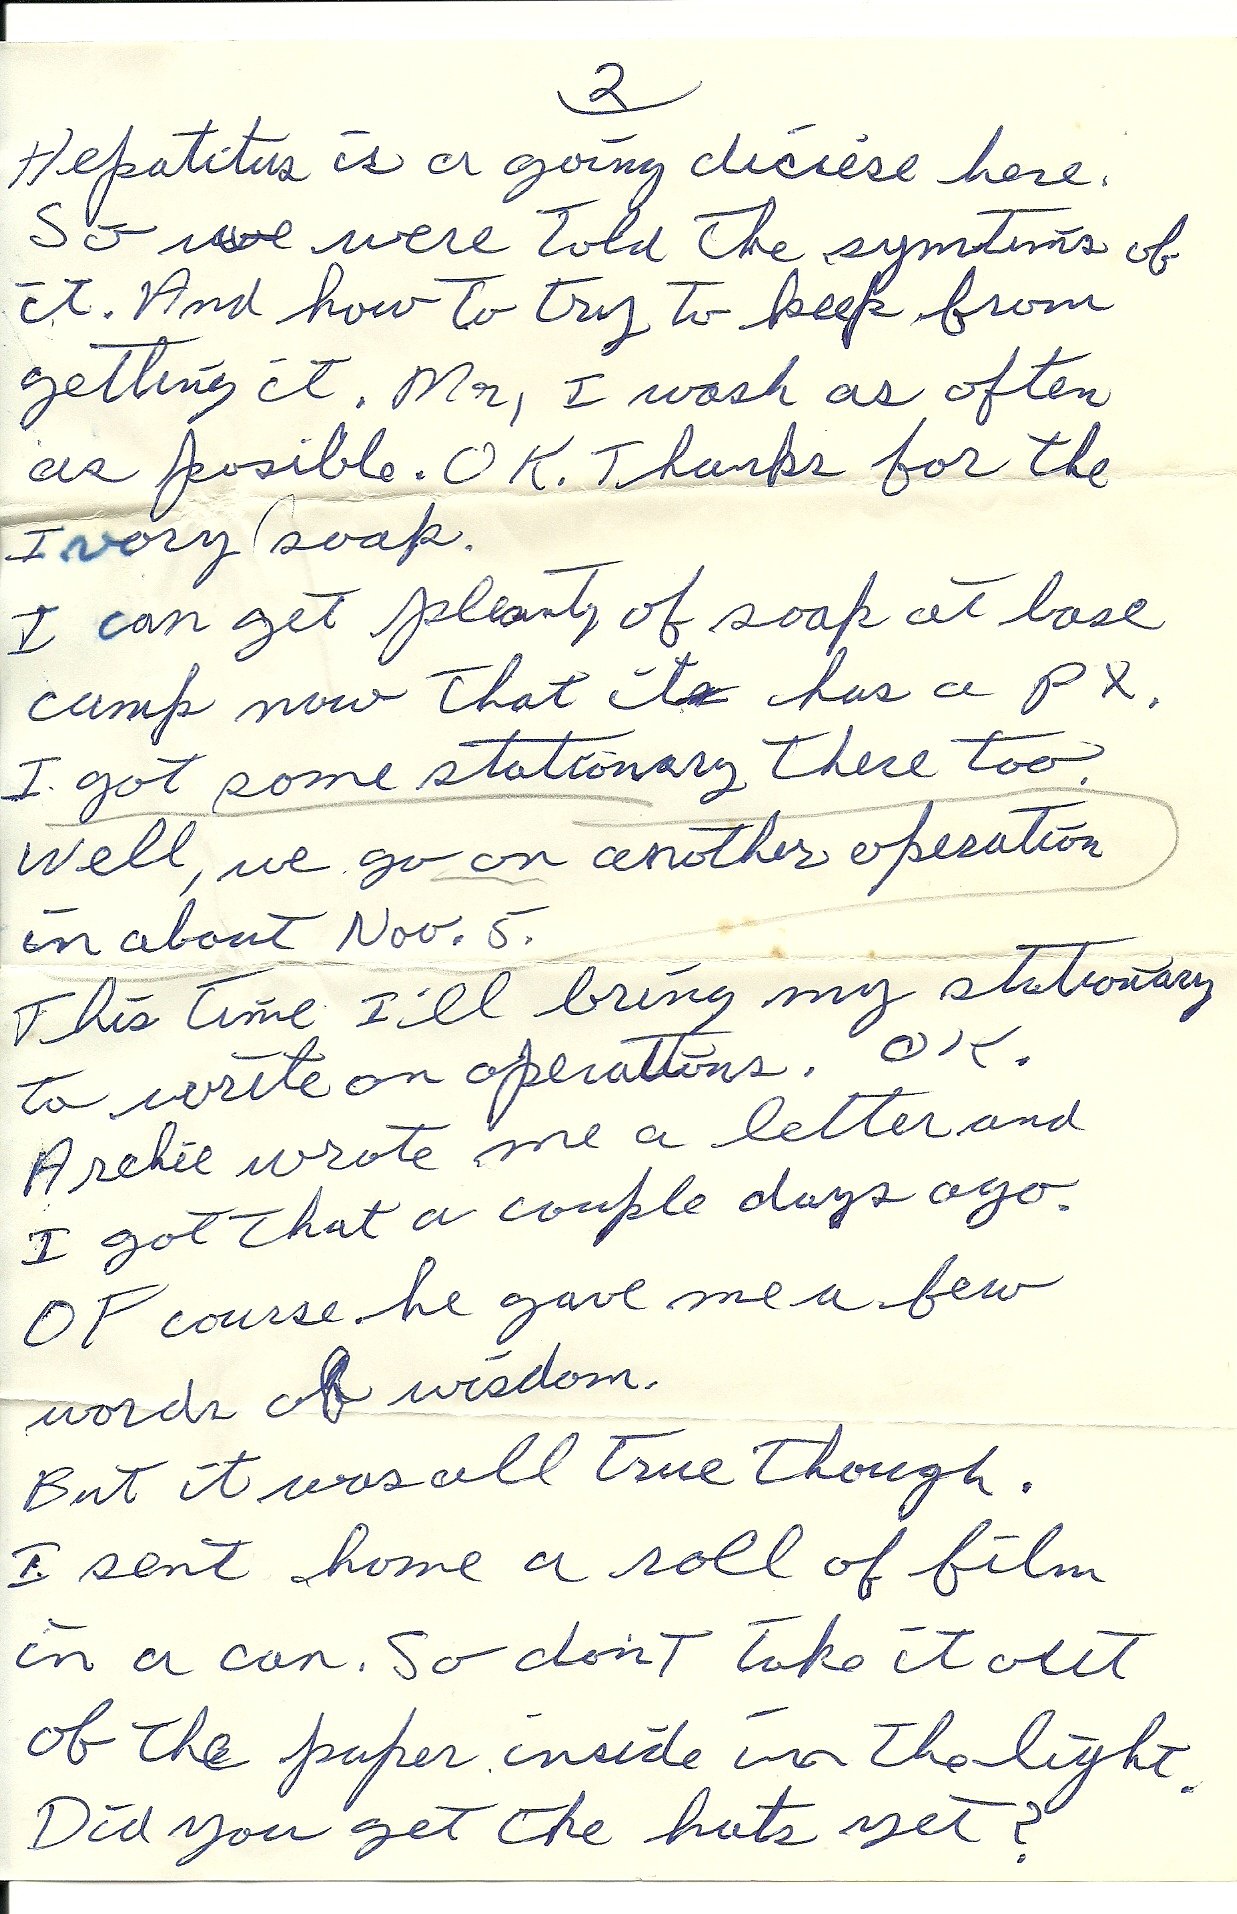 2
Hepatitus is a going diciese here.
So we were told the symtims of
it. And how to try to keep from
getting it. Mr, I wash as often
as posible. OK. Thanks for the
Ivory soap.
I can get plenty of soap at base
camp now that it has a PX.
I got some stationary there too.
Well, we go on another operation
in about Nov. 5.
This time I'll bring my stationary
to write on operations. OK.
Archie wrote me a letter and
I got that a couple days ago.
OF course he gave me a few
words of wisdom.
But it was all true though.
I sent home a roll of film
in a can. So don't take it out
of the paper inside in the light.
Did you get the hats yet?